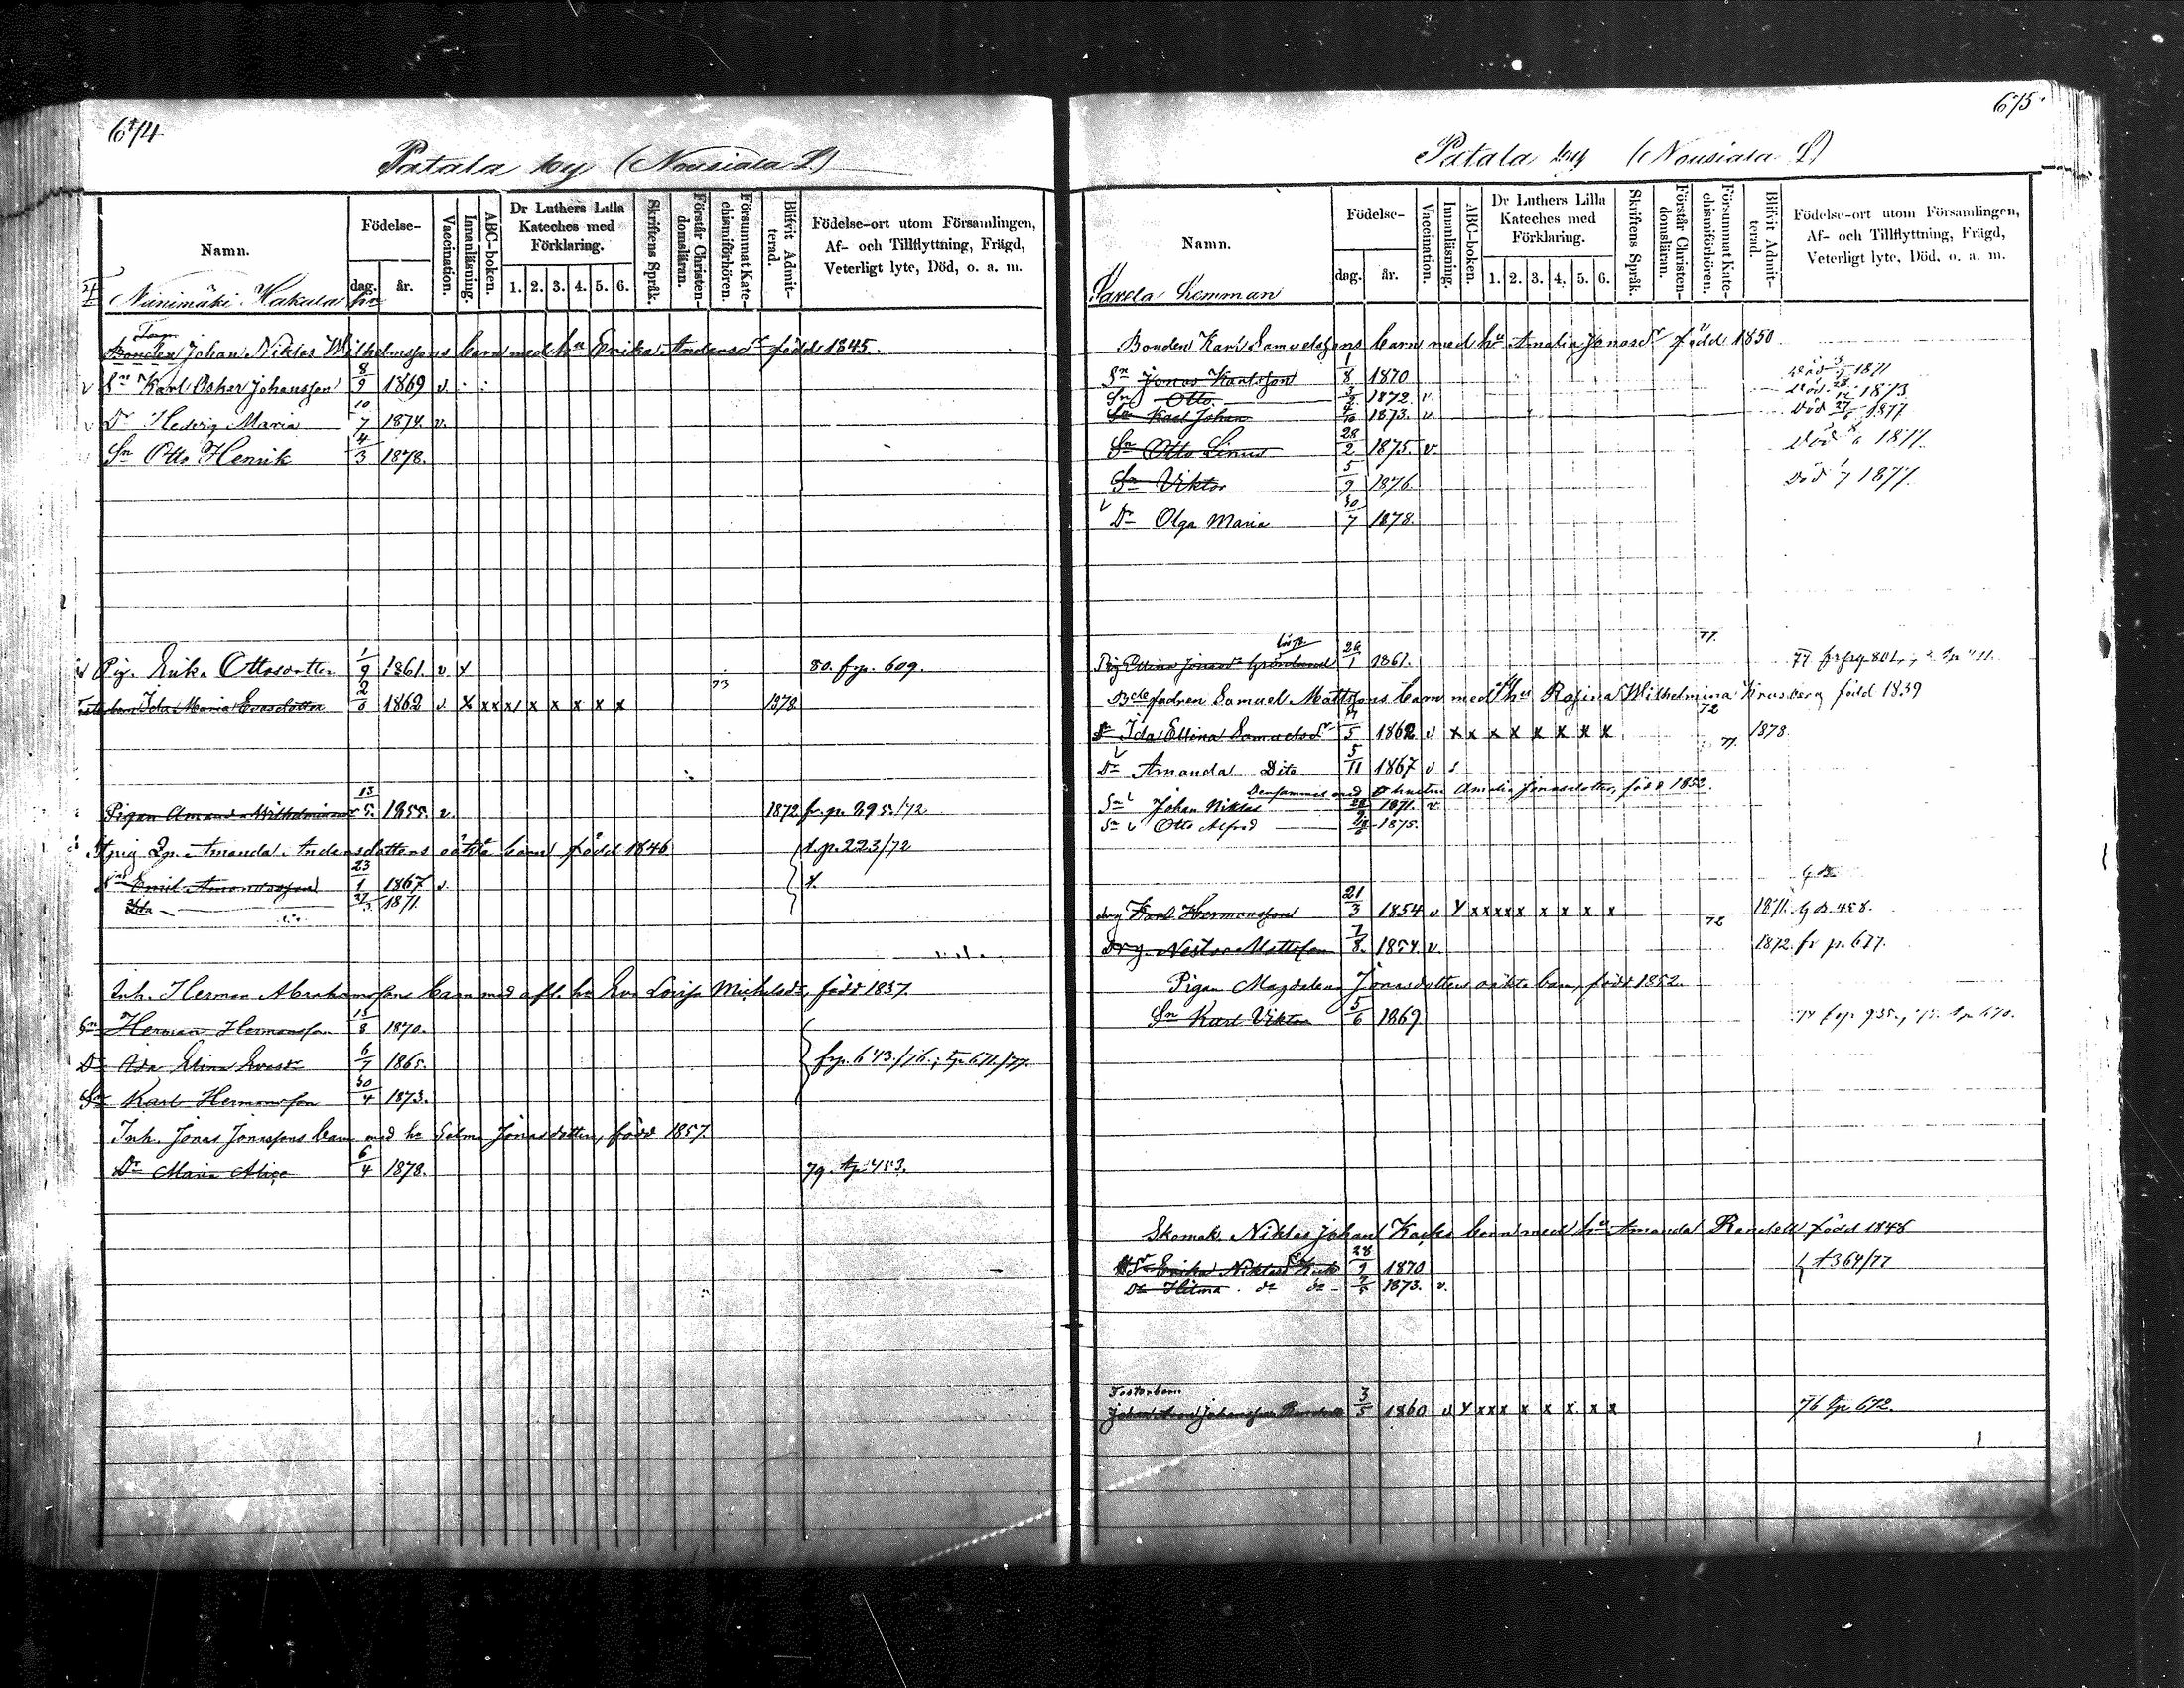 674
Patala by (Nousiala L)
Namn.
Födelse-
dag.
år.
Vaccination.
Innanläsning.
ABC-boken.
Dr Luthers Lilla Kateches med Förklaring.
1. 2. 3. 4. 5. 6.
Skriftens Språk.
Förstår Christen-domsläran.
Försummat Kate-chismiförhören.
Blifvit Admit-terad.
Födelse-ort utom Församlingen, Af- och Tillflyttning, Frägd, Veterligt lyte, Död, o. a. m.
Niinimäki Hakala
Bonden Johan Niklas Wilhelmssons barn med hu Erika Andersdr född 1845.
Sn Karl Oskar Johansson 8/9 1869 v.
Dr Hedvig Maria 10/7 1874 v.
Sn Otto Henrik 4/3 1878.
Pig. Erika Ottosdotter 1/9 1861. v Y 80. frp. 609.
Ida Maria Evasdotter 1862 v. X x x x x x x x 73 1878
Pigan Amanda Wilhelmina 13/5. 1855. v. 1872 fr. p. 295./72
Amanda Andersdotters oäkta barn född 1846 t.p. 223/72
Sn Emil Amandasson 23/1 1867 v.
Ida 1871.
Inh. Herman Abrahamssons barn med afl. hu Eva Lovisa Michelsdr, född 1837.
Sn Herman Hermansson 15/8 1870.
Dr Ida Elina Evasdr 6/7 1865. frp. 643./76.; tp 671/77.
Sn Karl Hermansson 30/4 1873.
Inh. Jonas Jonassons barn med hu Selma Jonasdotter, född 1857.
Dr Maria Alice 6/4 1878. 79. tp 453.
675
Patala by (Nousiala L)
Namn.
Födelse-
dag.
år.
Vaccination.
Innanläsning.
ABC-boken.
Dr Luthers Lilla Kateches med Förklaring.
1. 2. 3. 4. 5. 6.
Skriftens Språk.
Förstår Christen-domsläran.
Försummat Kate-chismiförhören.
Blifvit Admit-terad.
Födelse-ort utom Församlingen, Af- och Tillflyttning, Frägd, Veterligt lyte, Död, o. a. m.
Pavela hemman
Bonden Karl Samuelssons barn med hu Amalia Jonasdr född 1850
Sn Jonas Karlsson 1/8 1870 Död 1871
Sn Otto 1872. v. Död 1873
Sn Karl Johan 4/10 1873. v. Död 1877
Sn Otto Linus 28/2 1875. v. Död 1877.
Sn Viktor 5/9 1876. Död 1877.
Dr Olga Maria 30/7 1878.
77.
Jonasdr Grönlund 26/1 1861.
Bdefadren Samuel Mattssons barn med hu Rosina Wilhelmina född 1839
72
Dr Ida Ellina Samuelsdr 5 1862 v x x x x x x x x 77. 1878
Dr Amanda Dito 5/11 1867 v s
Densammes med hustru Amalia Jonasdotter, född 1852.
Sn Johan Niklas 1871. v.
Sn Otto Alfred 1875.
Karl Hermansson 21/3 1854 v Y x x x x x x x x x 1871.
Drg. Nestor Mattsson 7/8. 1854. v. 1872. fr p. 677.
Pigan Magdalena Jonasdotters oäkta barn, född 1852.
Sn Karl Viktor 5/6 1869
Skomak. Niklas Johan barn med hu Amanda Randell född 1848
Dr Erika 28/9 1870 t 364/77
Dr Hilma do do 1873. v.
Fosterbarn
Johan 3/5 1860 v Y x x x x x x x x 76 tp 672.